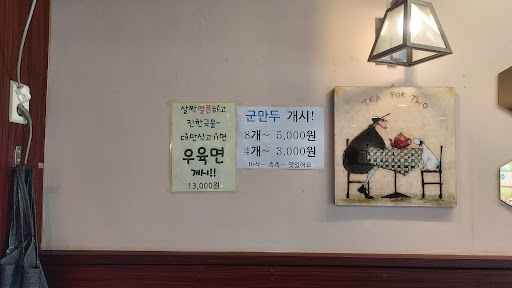 살짝얼큰하고
진한국물~
대만식고기면
우육면
개시!!
13,000원
군만두 개시!
8개~ 5,000원
4개~ 3,000원
바삭~ 촉촉~ 맛있어요
TEA FOR TWO